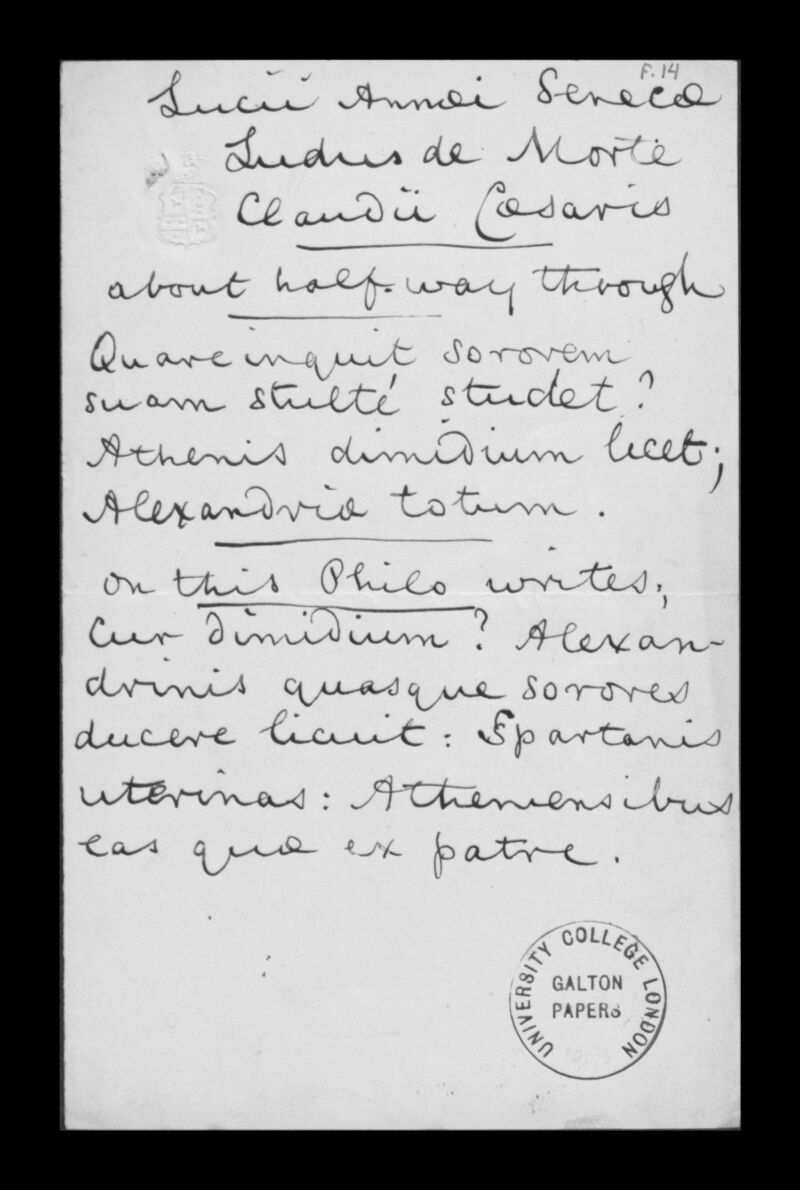 F.14
Lucii Annæi Senecæ
Ludus de Morte
Claudii Cæsaris
about half-way through
Quare inquit sororem
suam stulté studet?
Athenis dimidium licet;
Alexandriæ totum.
on this Philo writes;
Cur dimidium? Alexan-
drinis quasque sorores
ducere licuit: Spartanis
uterinas: Atheniensibus
eas quæ ex patre.
UNIVERSITY COLLEGE LONDON
GALTON
PAPERS